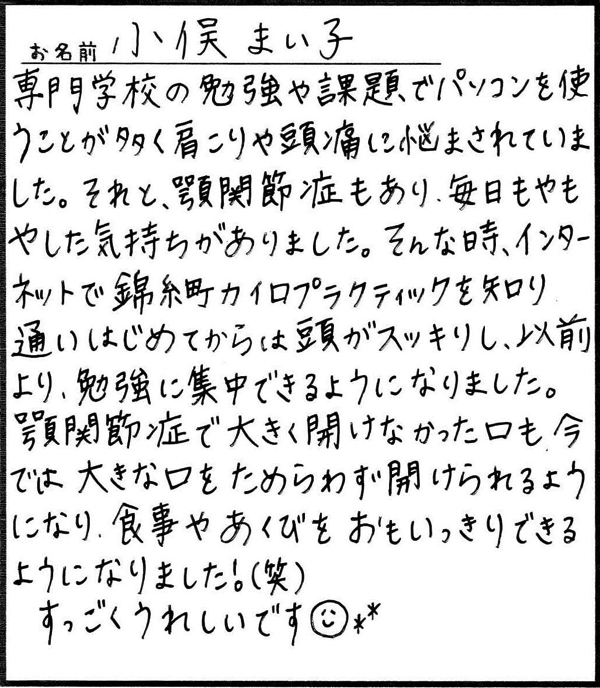 お名前 小俣 まい子
専門学校の勉強や課題でパソコンを使
うことが多く肩こりや頭痛に悩まされていま
した。それと、顎関節症もあり、毎日もやも
やした気持ちがありました。そんな時、インター
ネットで錦糸町カイロプラクティックを知り
通いはじめてからは頭がスッキリし、以前
より、勉強に集中できるようになりました。
顎関節症で大きく開けなかった口も、今
では大きな口をためらわず開けられるよう
になり、食事やあくびをおもいっきりできる
ようになりました!(笑)
すっごくうれしいです☺**